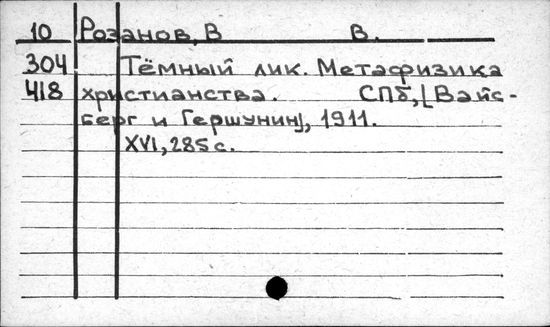 10 Розанов, В В.
304 Тёмный лик. Метафизика
418 христианства. СПб, [Вайс-
берг и Гершунин], 1911.
XVI, 285 с.